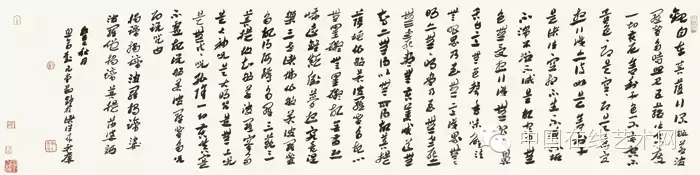 觀自在菩薩行深般若波
羅蜜多時照見五蘊皆空度
一切苦厄舍利子色不異空空不
異色色即是空空即是色受
想行識亦復如是舍利子
是諸法空相不生不滅不垢
不淨不增不減是故空中無
色無受想行識無眼耳鼻
舌身意無色聲香味觸法
無眼界乃至無意識界無無
明亦無無明盡乃至無老死
亦無老死盡無苦集滅道無
智亦無得以無所得故菩提
薩埵依般若波羅蜜多故心
無罣礙無罣礙故無有恐
怖遠離顛倒夢想究竟涅
槃三世諸佛依般若波羅蜜
多故得阿耨多羅三藐三
菩提故知般若波羅蜜多
是大神咒是大明咒是無上咒
是無等等咒能除一切苦真實
不虛故說般若波羅蜜多咒
即說咒曰
揭諦揭諦波羅揭諦波
羅僧揭諦菩提薩婆訶
中国在线艺术网